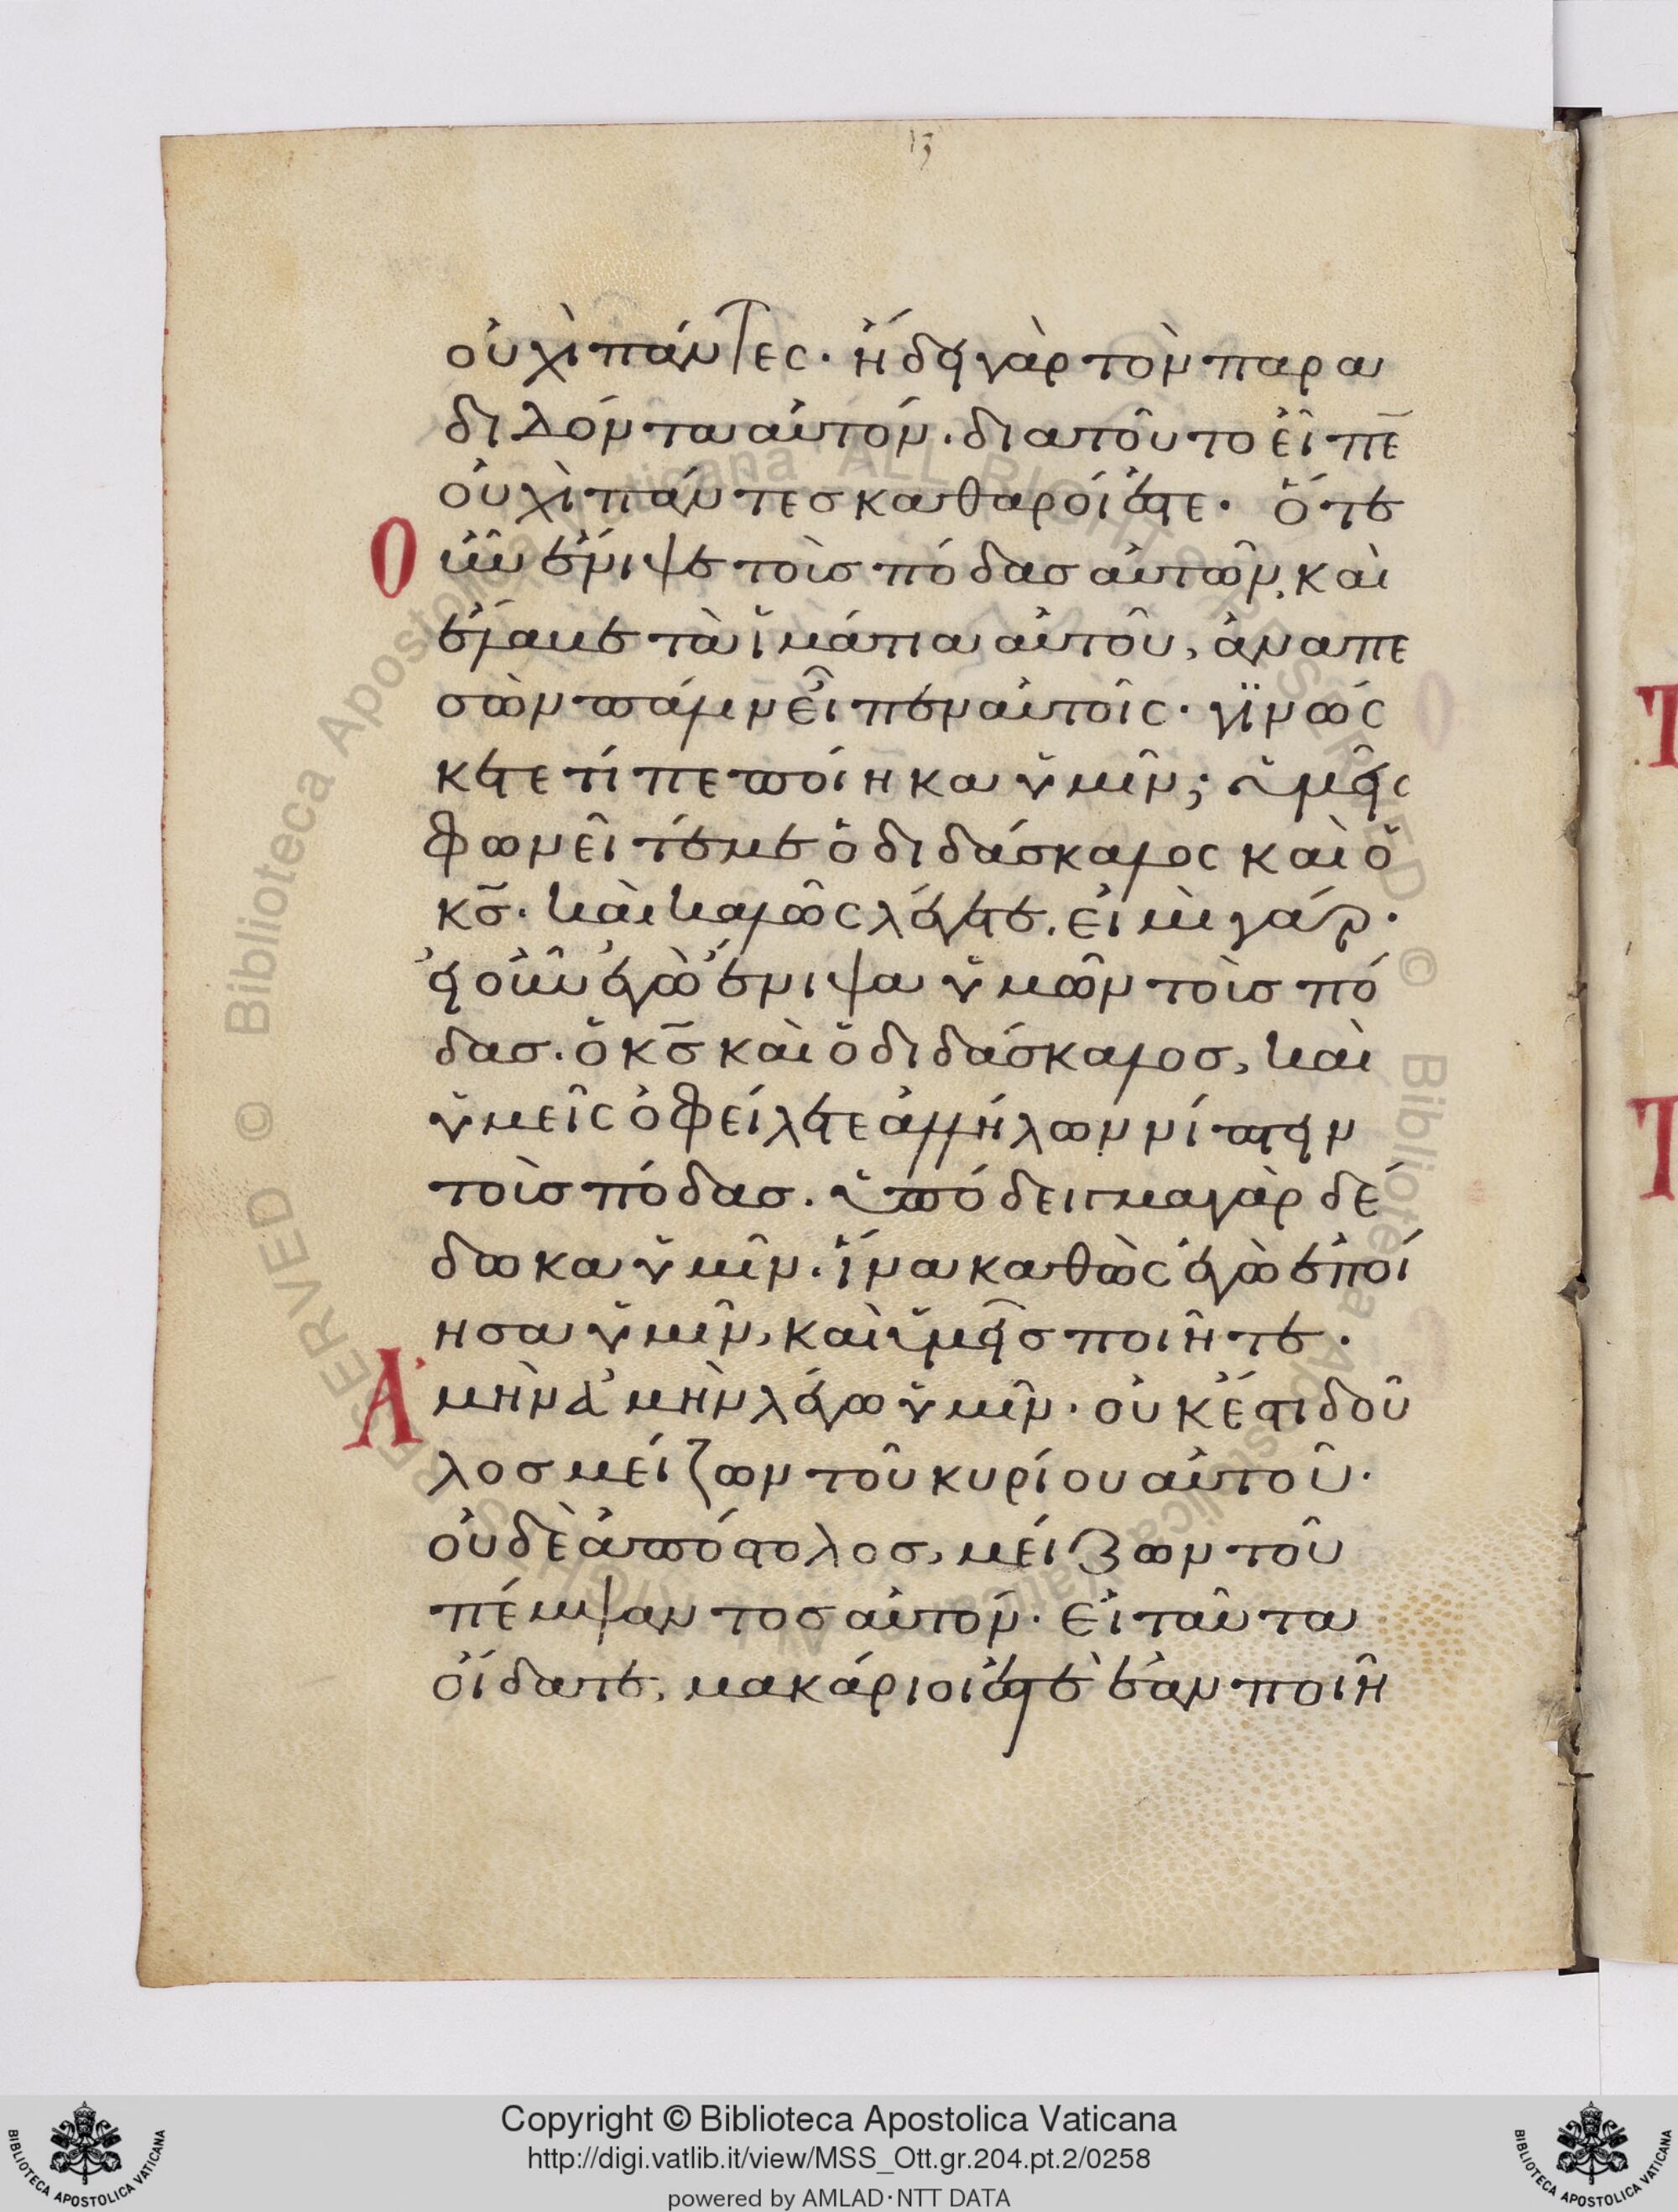 13
οὐχὶ πάντες· ἤδει γὰρ τὸν παρα
διδόντα αὐτόν. διατοῦτο εἶπε̄
οὐχὶ πάντες καθαροί ἐστε· ὅτε
Οὖν ἔνιψε τοὺς πόδας αὐτῶν, καὶ
ἔλαβε τὰ ἱμάτια αὐτοῦ, ἀναπε
σὼν πάλιν εἶπεν αὐτοῖς· γϊνώς
κετε τί πεποίηκα ὑμῖν; ὑμεῖς
φωνεῖτέ με ὁ διδάσκαλος καὶ ὁ
κ̅ς̅· καὶ καλῶς λέγετε. εἰμὶ γάρ·
εἰ οὖν ἐγὼ ἔνιψα ὑμῶν τοὺς πό
δας. ὁ κ̅ς̅ καὶ ὁ διδάσκαλος, καὶ
ὑμεῖς ὀφείλετε ἀλλήλων νίπτειν
τοὺς πόδας. ὑπόδειγμα γὰρ δέ
δωκα ὑμῖν. ἵνα καθὼς ἐγὼ ἐποί
ησα ὑμῖν, καὶ ὑμεῖς ποιῆτε·
Ἀμὴν ἀμὴν λέγω ὑμῖν· οὐκ ἔστι δοῦ
λος μείζων τοῦ κυρίου αὐτοῦ·
οὐδὲ ἀπόστολος, μείζων τοῦ
πέμψαντος αὐτόν· Εἰ ταῦτα
οἴδατε, μακάριοί ἐστὲ ἐὰν ποιῆ
Biblioteca Apostolica Vaticana ALL RIGHTS RESERVED ©
Copyright © Biblioteca Apostolica Vaticana
http://digi.vatlib.it/view/MSS_Ott.gr.204.pt.2/0258
powered by AMLAD·NTT DATA
BIBLIOTECA APOSTOLICA VATICANA
BIBLIOTECA APOSTOLICA VATICANA